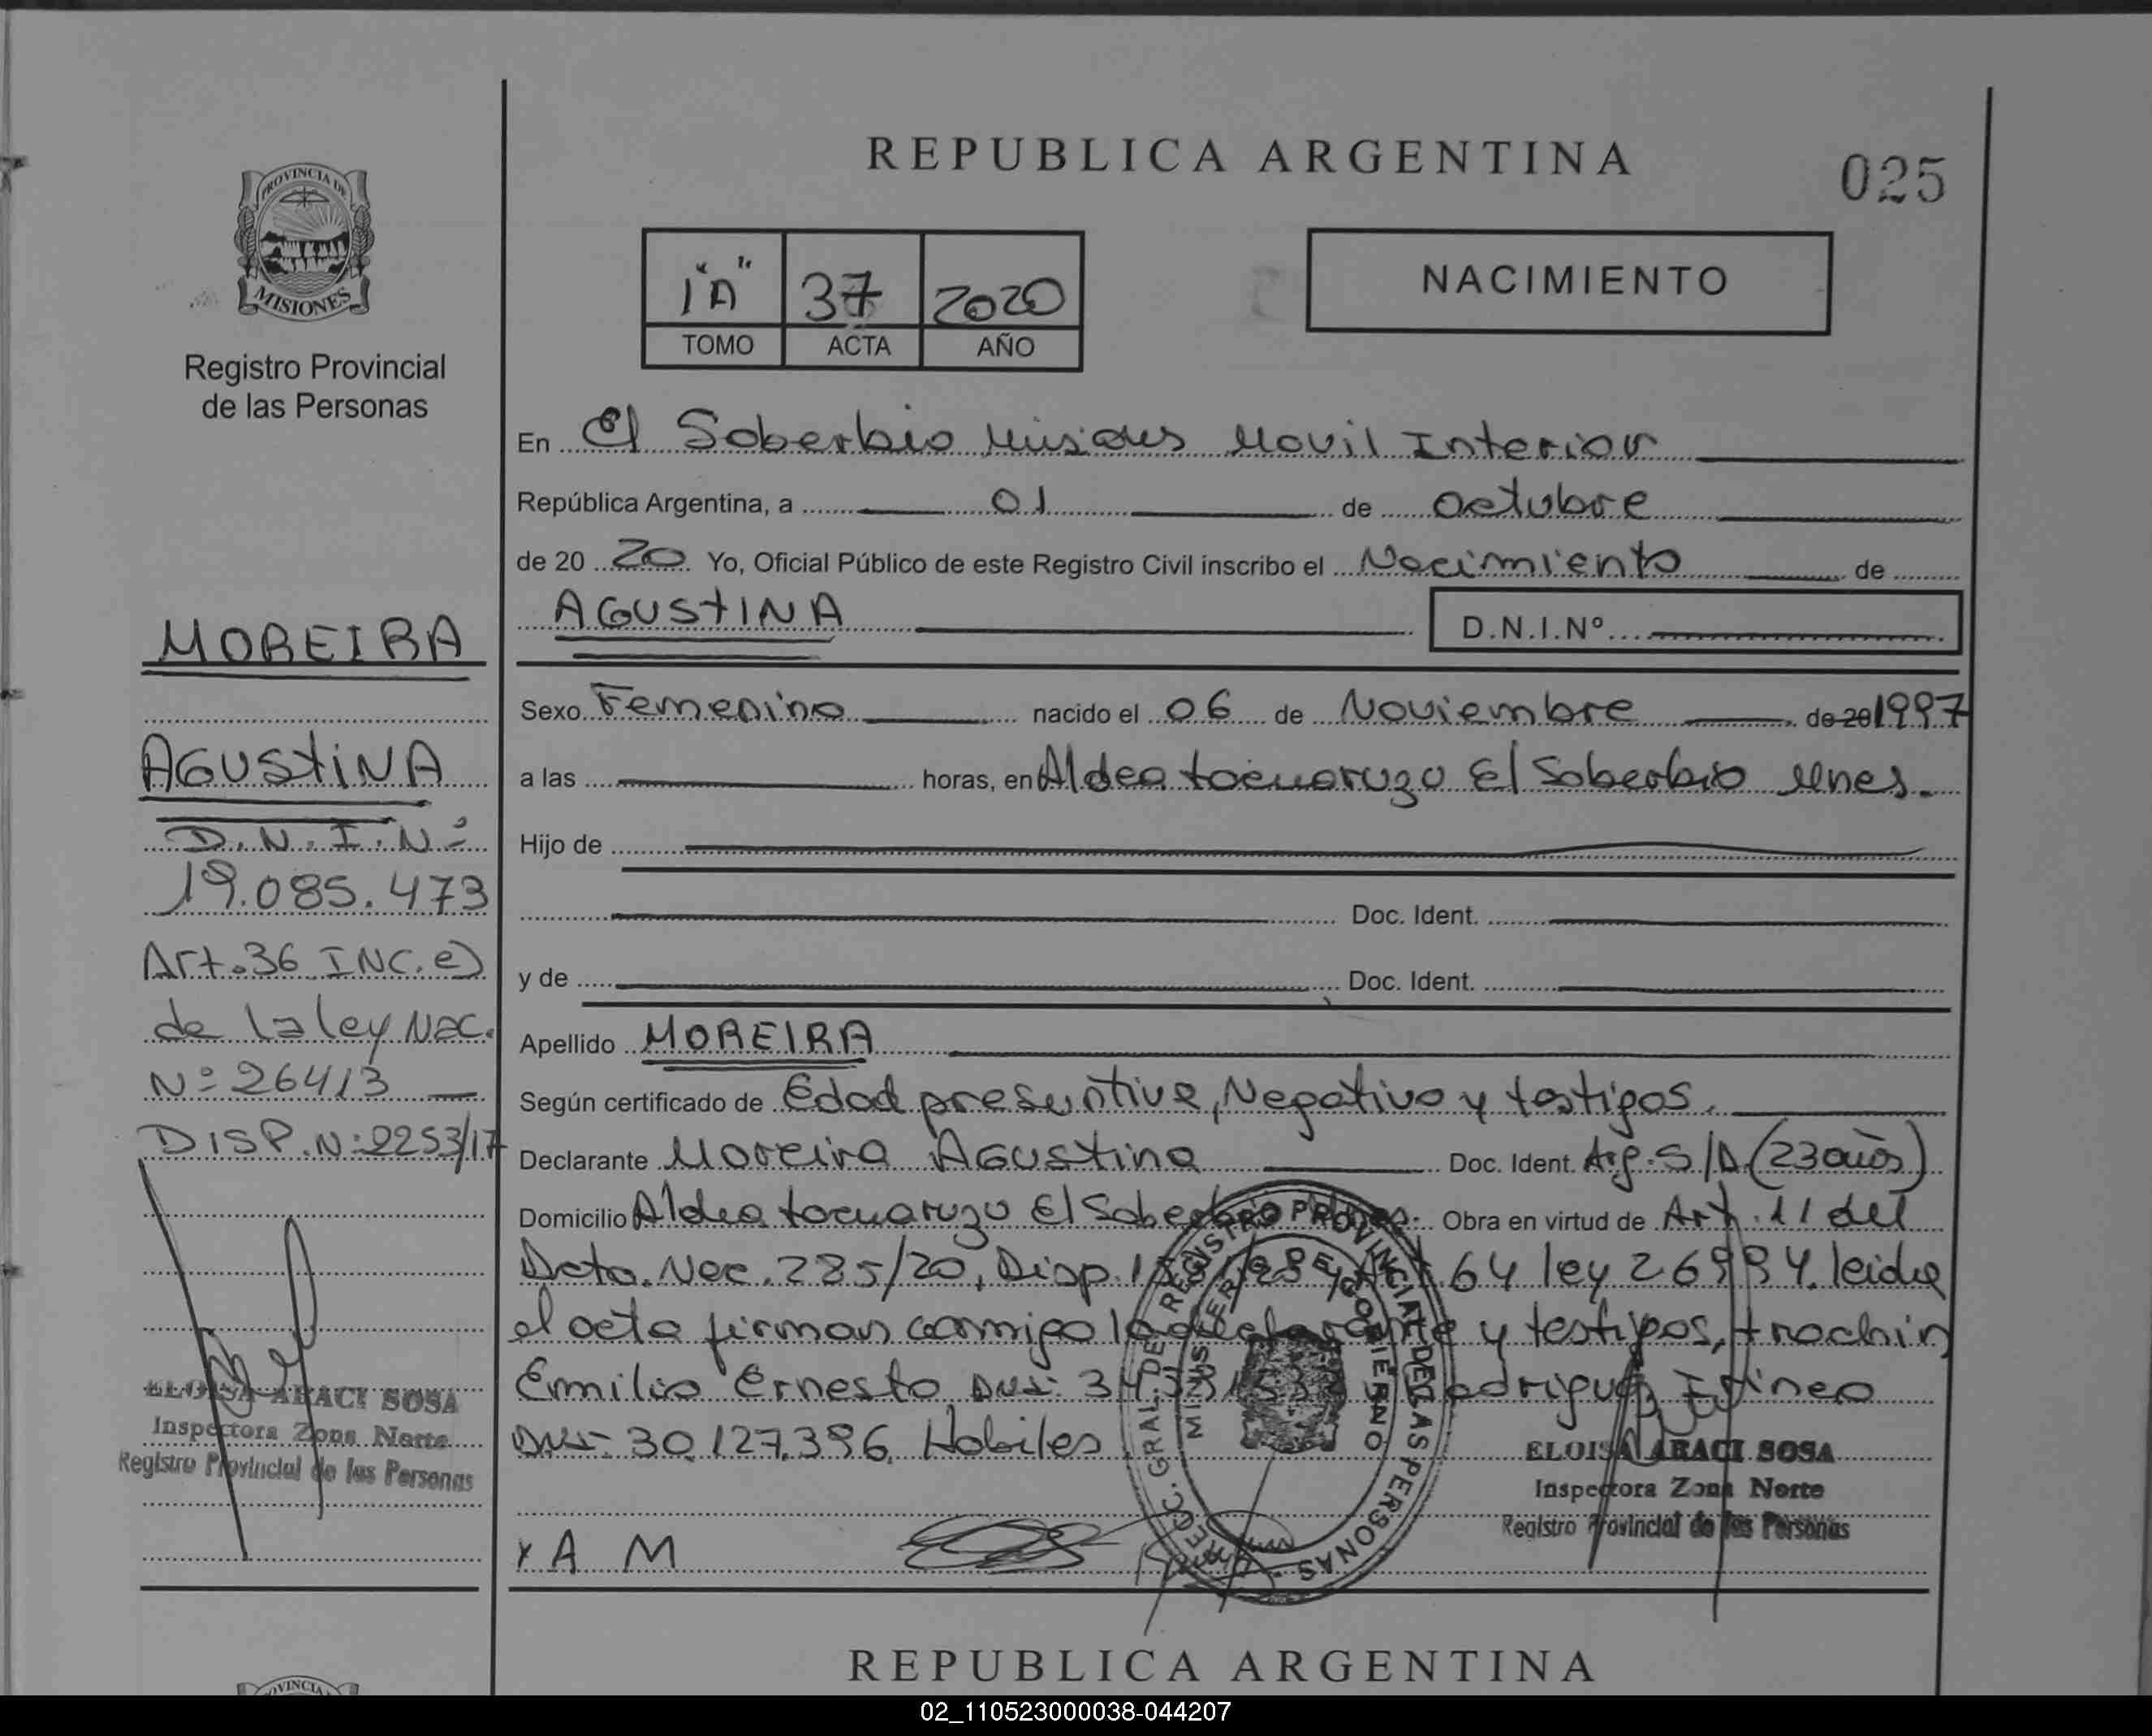 REPUBLICA ARGENTINA
025
PROVINCIA DE
MISIONES
Registro Provincial
de las Personas
1"A" 37 2020
TOMO ACTA AÑO
NACIMIENTO
En El Soberbio Misiones Movil Interior
República Argentina, a 01 de octubre
de 20 20 Yo, Oficial Público de este Registro Civil inscribo el Nacimiento de
AGUSTINA D.N.I.Nº
Sexo Femenino nacido el 06 de Noviembre de 20 1997
a las horas, en Aldea El Soberbio Mnes.
Hijo de
Doc. Ident.
y de Doc. Ident.
Apellido MOREIRA
Según certificado de Edad presuntiva, Negativo y testigos.
Declarante Moreira Agustina Doc. Ident. Arg. S/D (23 años)
Domicilio Aldea El Obra en virtud de Art. 11 del
Dcto. Nec. 285/20, Disp. 64 ley 26994. leida
el acta firman conmigo la declarante y testigos,
Emilio Ernesto DNI: Rodriguez
DNI: 30.127.396, Habiles
x A M
ELOISA ABACI SOSA
Inspectora Zona Norte
Registro Provincial de las Personas
MOREIRA
AGUSTINA
D.N.I.Nº
19.085.473
Art. 36 INC. e)
de la ley Nac.
Nº 26413
DISP. Nº 2253/17
ELOISA ABACI SOSA
Inspectora Zona Norte
Registro Provincial de las Personas
DIREC. GRAL. DE REGISTRO PROVINCIAL DE LAS PERSONAS
MINISTERIO DE GOBIERNO
REPUBLICA ARGENTINA
02_110523000038-044207